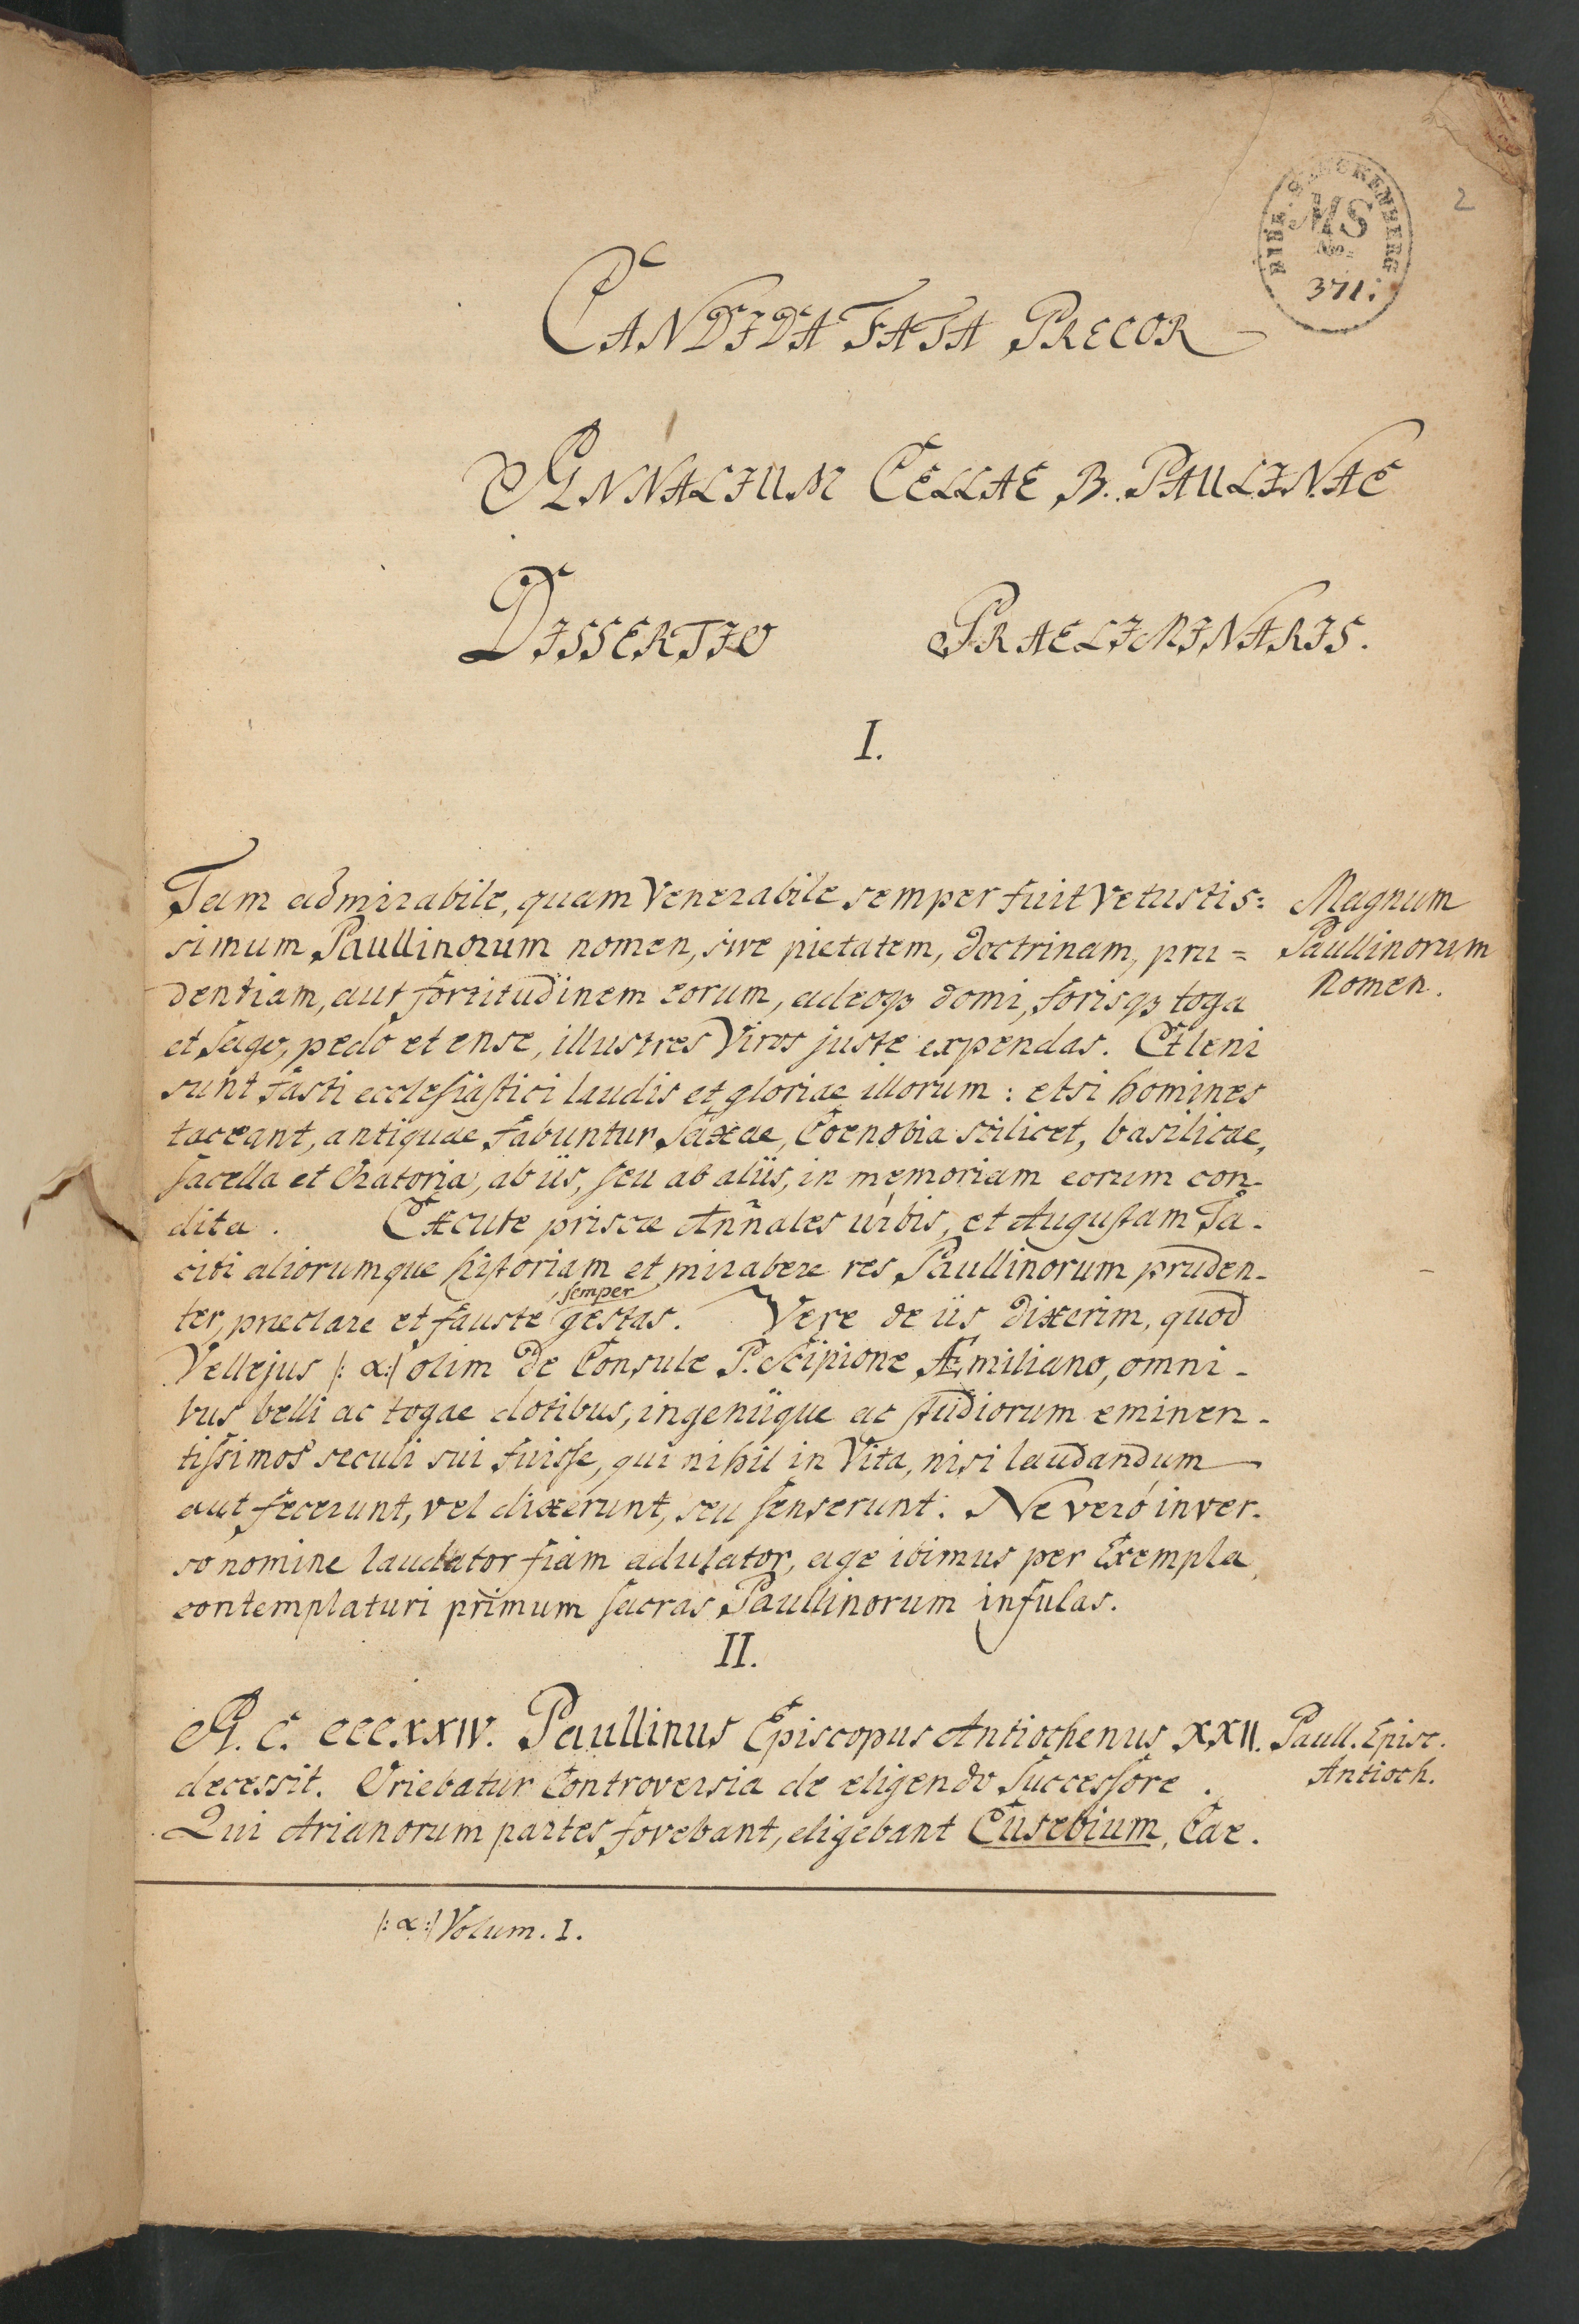 2
BIBL. SENCKENBERG
MS
No.
371.
CANDIDA FATA PRECOR
ANNALIUM CELLAE B. PAULINAE
DISSERTIO PRAELIMINARIS.
I.
Tam admirabile, quam Venerabile semper fuit Vetustis=
simum Paullinorum nomen, sive pietatem, doctrinam, pru=
dentiam, aut fortitudinem eorum, adeoq3 domi, forisq3 toga
et sago, pedo et ense, illustres Viros juste expendas.
sunt fasti ecclesiastici laudis et gloriae illorum: etsi homines
taceant, antiquae fabuntur saxae, Coenobia scilicet, basilicae,
sacella et Oratoria, ab iis, seu ab aliis, in memoriam eorum con-
dita. Excute priscae Annales urbis, et Augustam Ta-
citi aliorumque historiam et mirabere res Paullinorum pruden-
ter, praeclare et fauste semper gestas. Vere de iis dixerim, quod
Vellejus |: α:| olim de Consule P. Scipione Æmiliano, omni-
bus belli ac togae dotibus, ingeniique ac studiorum eminen-
tissimos seculi sui fuisse, qui nihil in Vita, nisi laudandum
aut fecerunt, vel dixerunt, seu senserunt. Ne veró inver-
so nomine laudator fiam adulator, age ibimus per Exempla,
contemplaturi primum sacras Paullinorum infulas.
Magnum
Paullinorum
Nomen.
II.
A. C. CCCXXIV. Paullinus Episcopus Antiochenus XXII.
decessit. Oriebatur Controversia de eligendo successore.
Qui Arianorum partes fovebant, eligebant Eusebium, Cae-
Paull. Episc.
Antioch.
|: α:| Volum. I.